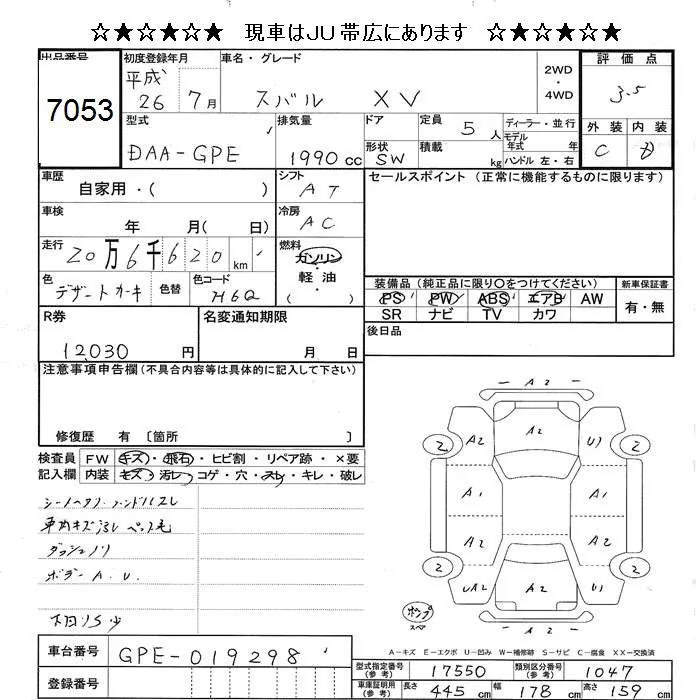 ☆★☆★☆★☆ 現車はJU帯広にあります ☆★☆★☆★☆
出品番号 7053
初度登録年月 平成 26 7月
車名・グレード スバル XV
2WD ・ 4WD
評価点 3.5
外装 内装
C D
型式 DAA-GPE
排気量 1990cc
ドア
形状 SW
定員 5人
積載 kg
ディーラー・並行
モデル年式 年式
ハンドル 左・右
車歴 自家用・( )
シフト AT
セールスポイント(正常に機能するものに限ります)
車検 年 月( 日)
冷房 AC
走行 20万6千620km
燃料 ガソリン・軽油 ・ ( )
色 デザートカーキ
色替
色コード H6Q
装備品(純正品に限り○をつけてください) 新車保証書
PS PW ABS エアB AW
SR ナビ TV カワ
有・無
R券 12,030円
名変通知期限 月 日
後日品
注意事項申告欄(不具合内容等は具体的に記入して下さい)
修復歴 有 〔箇所 〕
検査員記入欄
FW キズ・飛石・ヒビ割・リペア跡・×要
内装 キズ・汚レ・コゲ・穴・スレ・キレ・破レ
シートヘタリ ハンドルスレ
車内キズ汚レ ペット毛
ボデー A.U.
下回りS少
A2
A2 A2 U1
2 2
A1 A1
A2 A2
2 2
UA2 A2 U1
A2
ポンプ
スペア
A-キズ E-エクボ U-凹み W-補修跡 S-サビ C-腐食 XX-交換済
車台番号 GPE-019298
登録番号
型式指定番号(参考) 17550
類別区分番号(参考) 1047
車庫証明用(参考) 長さ 445cm 幅 178cm 高さ 159cm